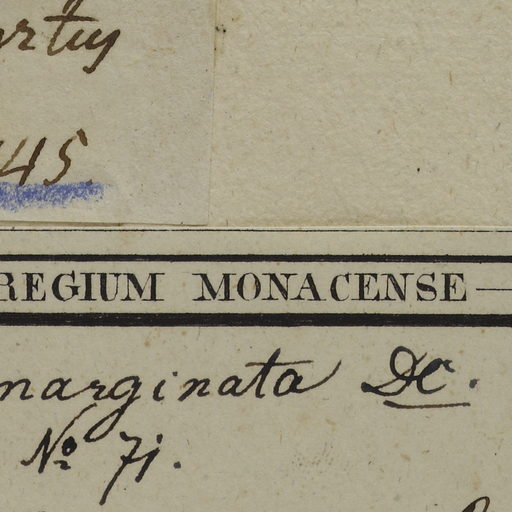 45.
REGIUM MONACENSE
marginata DC.
No 71.